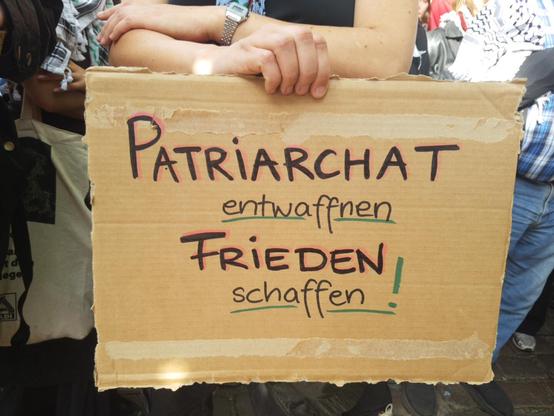 PATRIARCHAT
entwaffnen
FRIEDEN
schaffen!